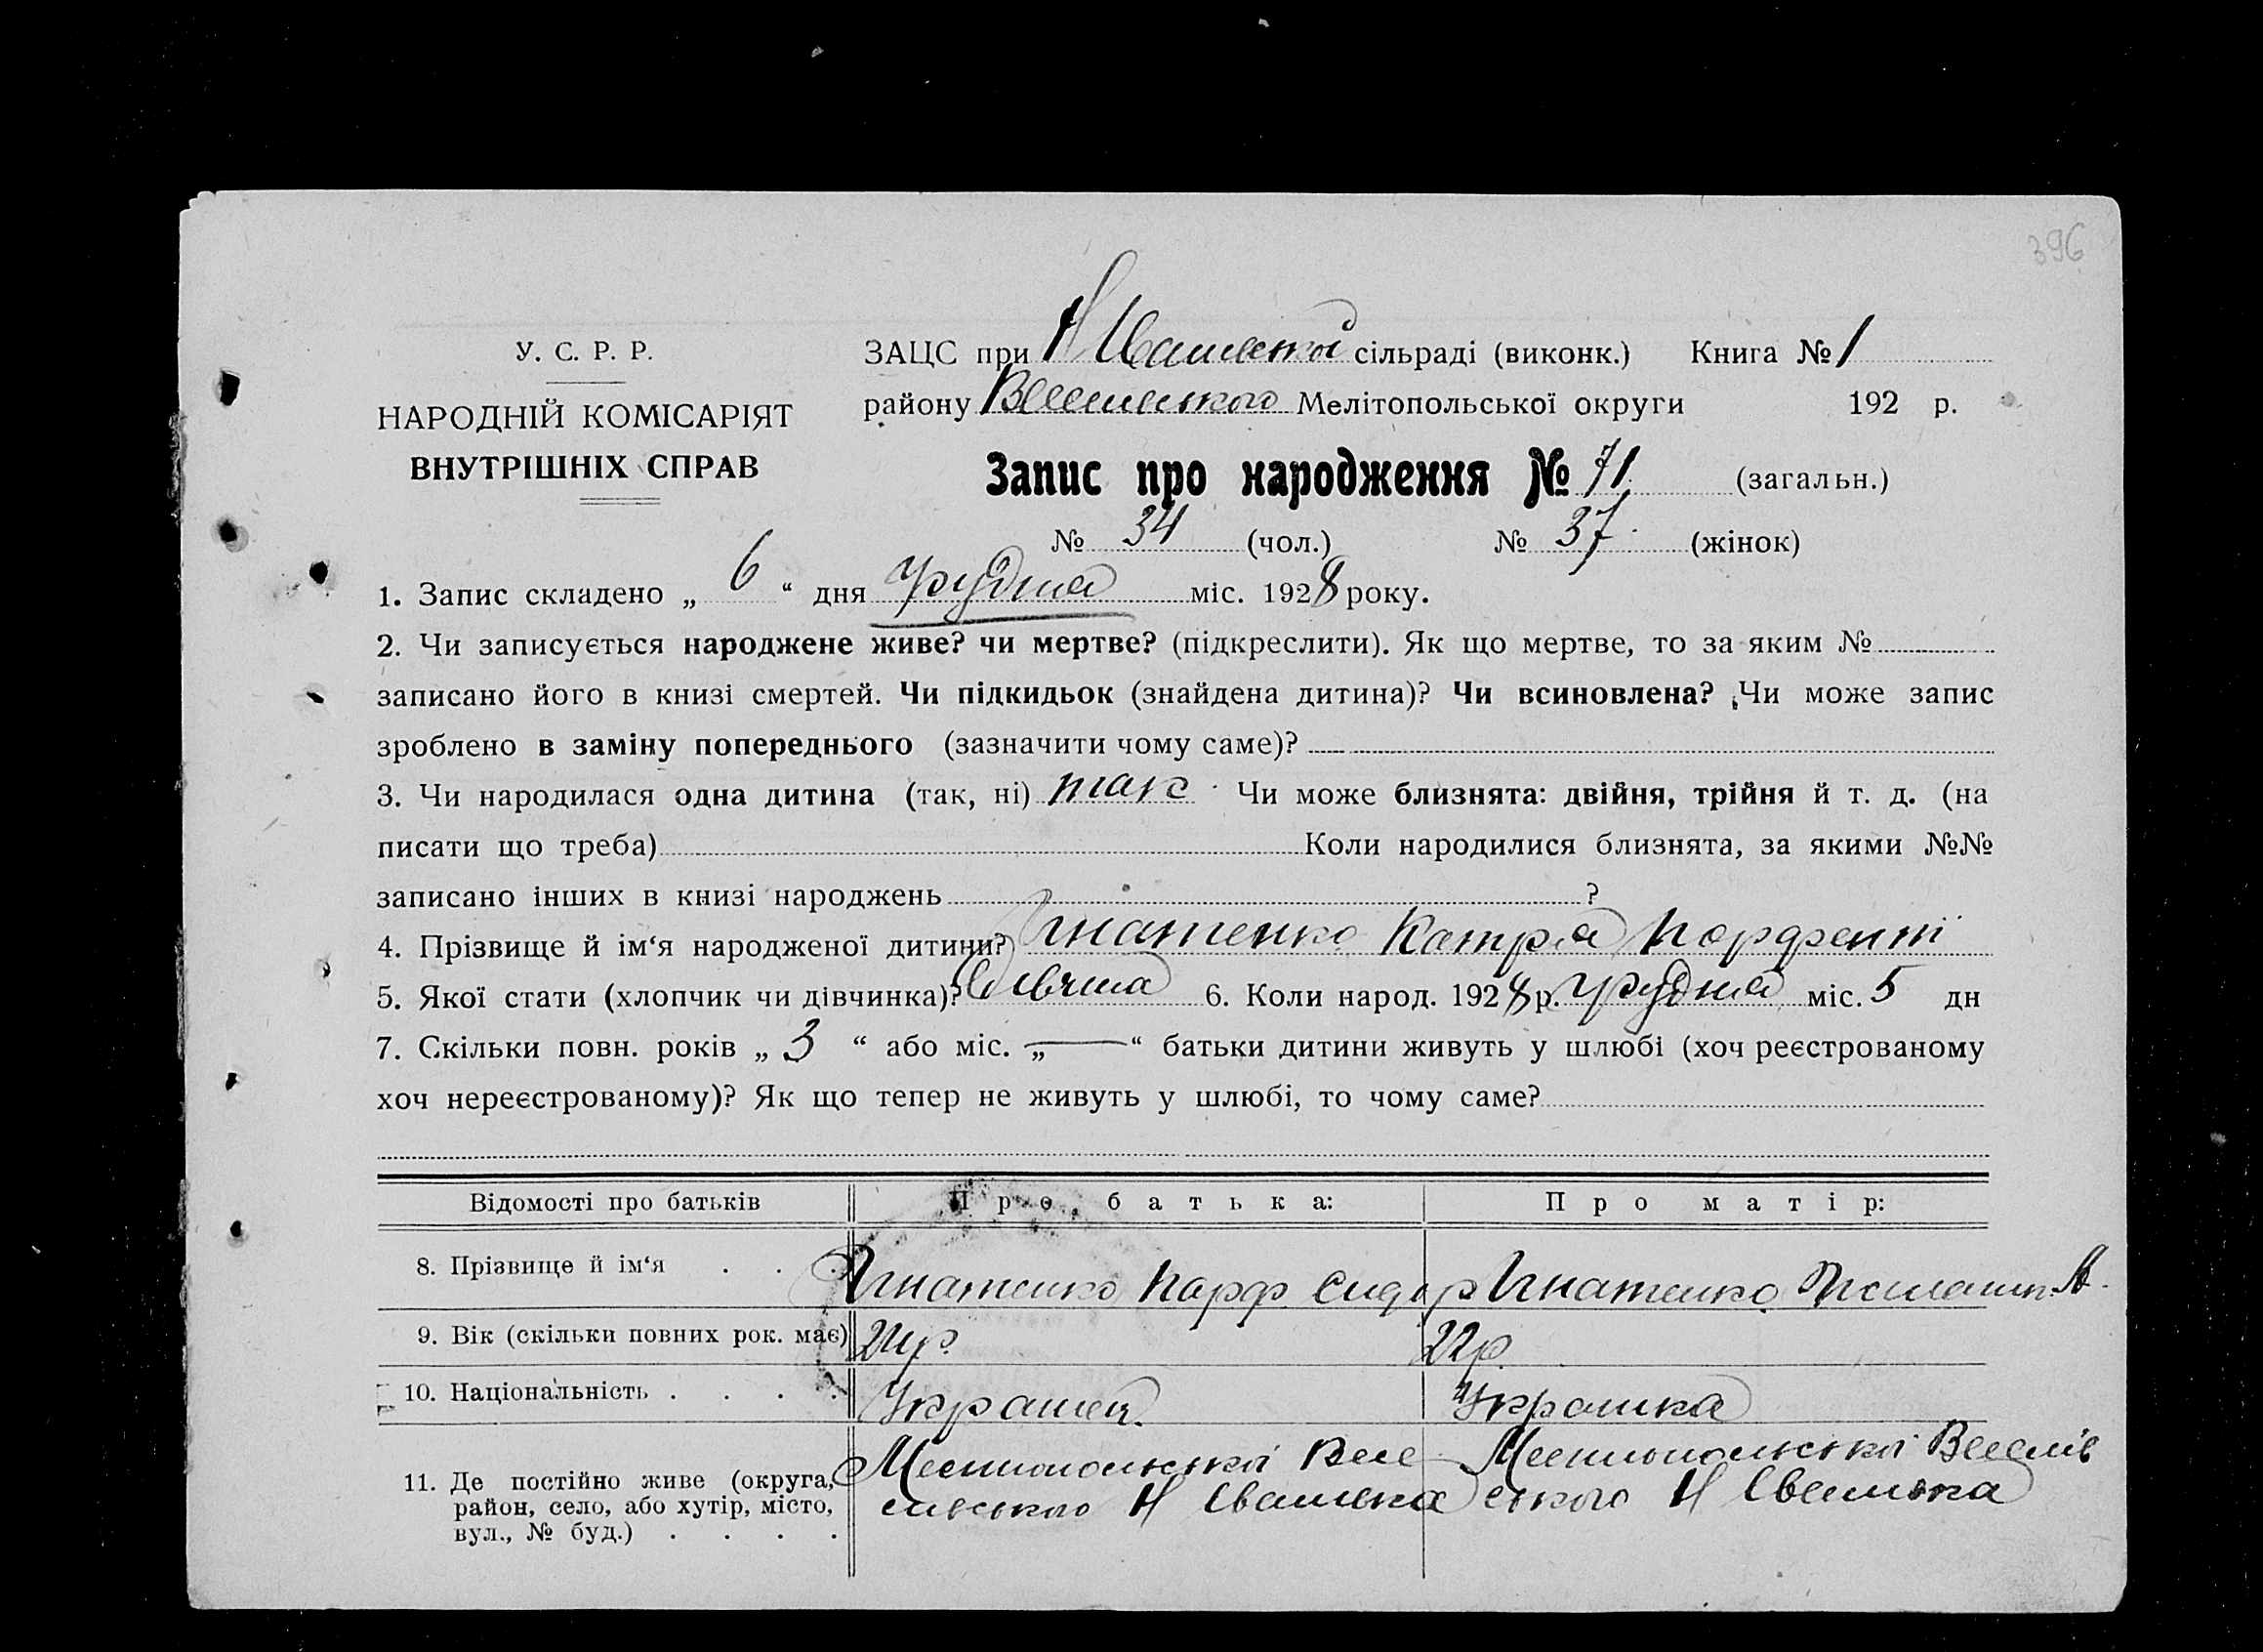 396
У. С. Р. Р.
НАРОДНІЙ КОМІСАРІЯТ
ВНУТРІШНІХ СПРАВ
ЗАЦС при Н сільраді (виконк.) Книга № 1
району Мелітопольської округи 192 р.
Запис про народження № 71 (загальн.)
№ 34 (чол.) № 37 (жінок)
1. Запис складено „ 6 “ дня грудня міс. 1928 року.
2. Чи записується народжене живе? чи мертве? (підкреслити). Як що мертве, то за яким №
записано його в книзі смертей. Чи підкидьок (знайдена дитина)? Чи всиновлена? Чи може запис
зроблено в заміну попереднього (зазначити чому саме)?
3. Чи народилася одна дитина (так, ні) так Чи може близнята: двійня, трійня й т. д. (на
писати що треба) Коли народилися близнята, за якими №№
записано інших в книзі народжень ?
4. Прізвище й ім‘я народженої дитини? Игнатенко Катря
5. Якої стати (хлопчик чи дівчинка)? 6. Коли народ. 1928 р. грудня міс. 5 дн
7. Скільки повн. років „ 3 “ або міс. „ — “ батьки дитини живуть у шлюбі (хоч реєстрованому
хоч нереєстрованому)? Як що тепер не живуть у шлюбі, то чому саме?
Відомості про батьків Про батька: Про матір:
8. Прізвище й ім‘я . . . Игнатенко Парф. Сидор Игнатенко А.
9. Вік (скільки повних рок. має) 22р.
10. Національність . . . . Українка
11. Де постійно живе (округа,
район, село, або хутір, місто,
вул., № буд.) . . . .